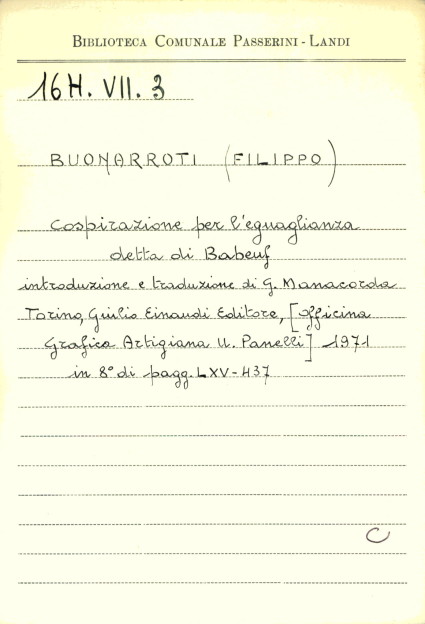 BIBLIOTECA COMUNALE PASSERINI - LANDI
16H. VII. 3
BUONARROTI (FILIPPO)
Cospirazione per l'eguaglianza
detta di Babeuf
introduzione e traduzione di G. Manacorda
Torino, Giulio Einaudi Editore, [Officina
Grafica Artigiana U. Panelli] 1971
in 8° di pagg. LXV-437
C